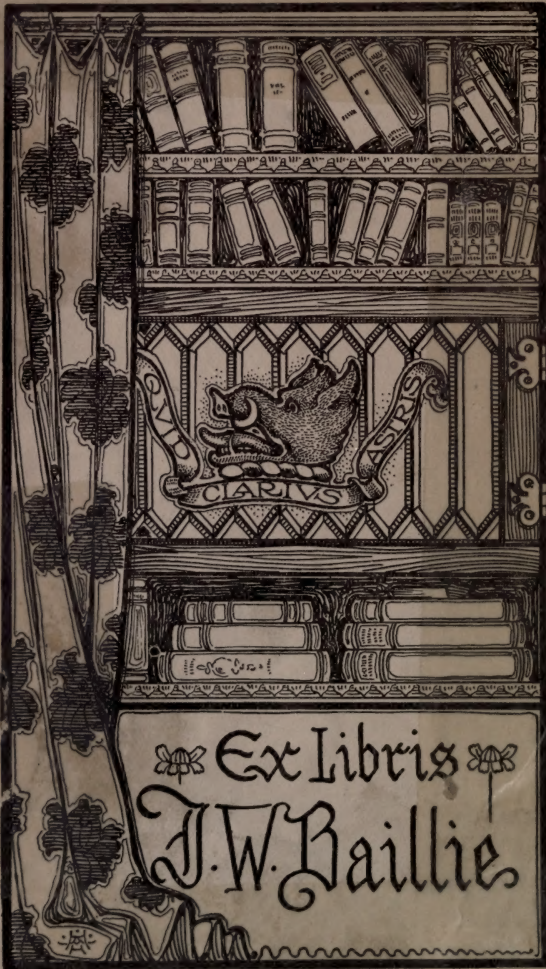 QVID CLARIVS ASTRIS
Ex Libris
J. W. Baillie